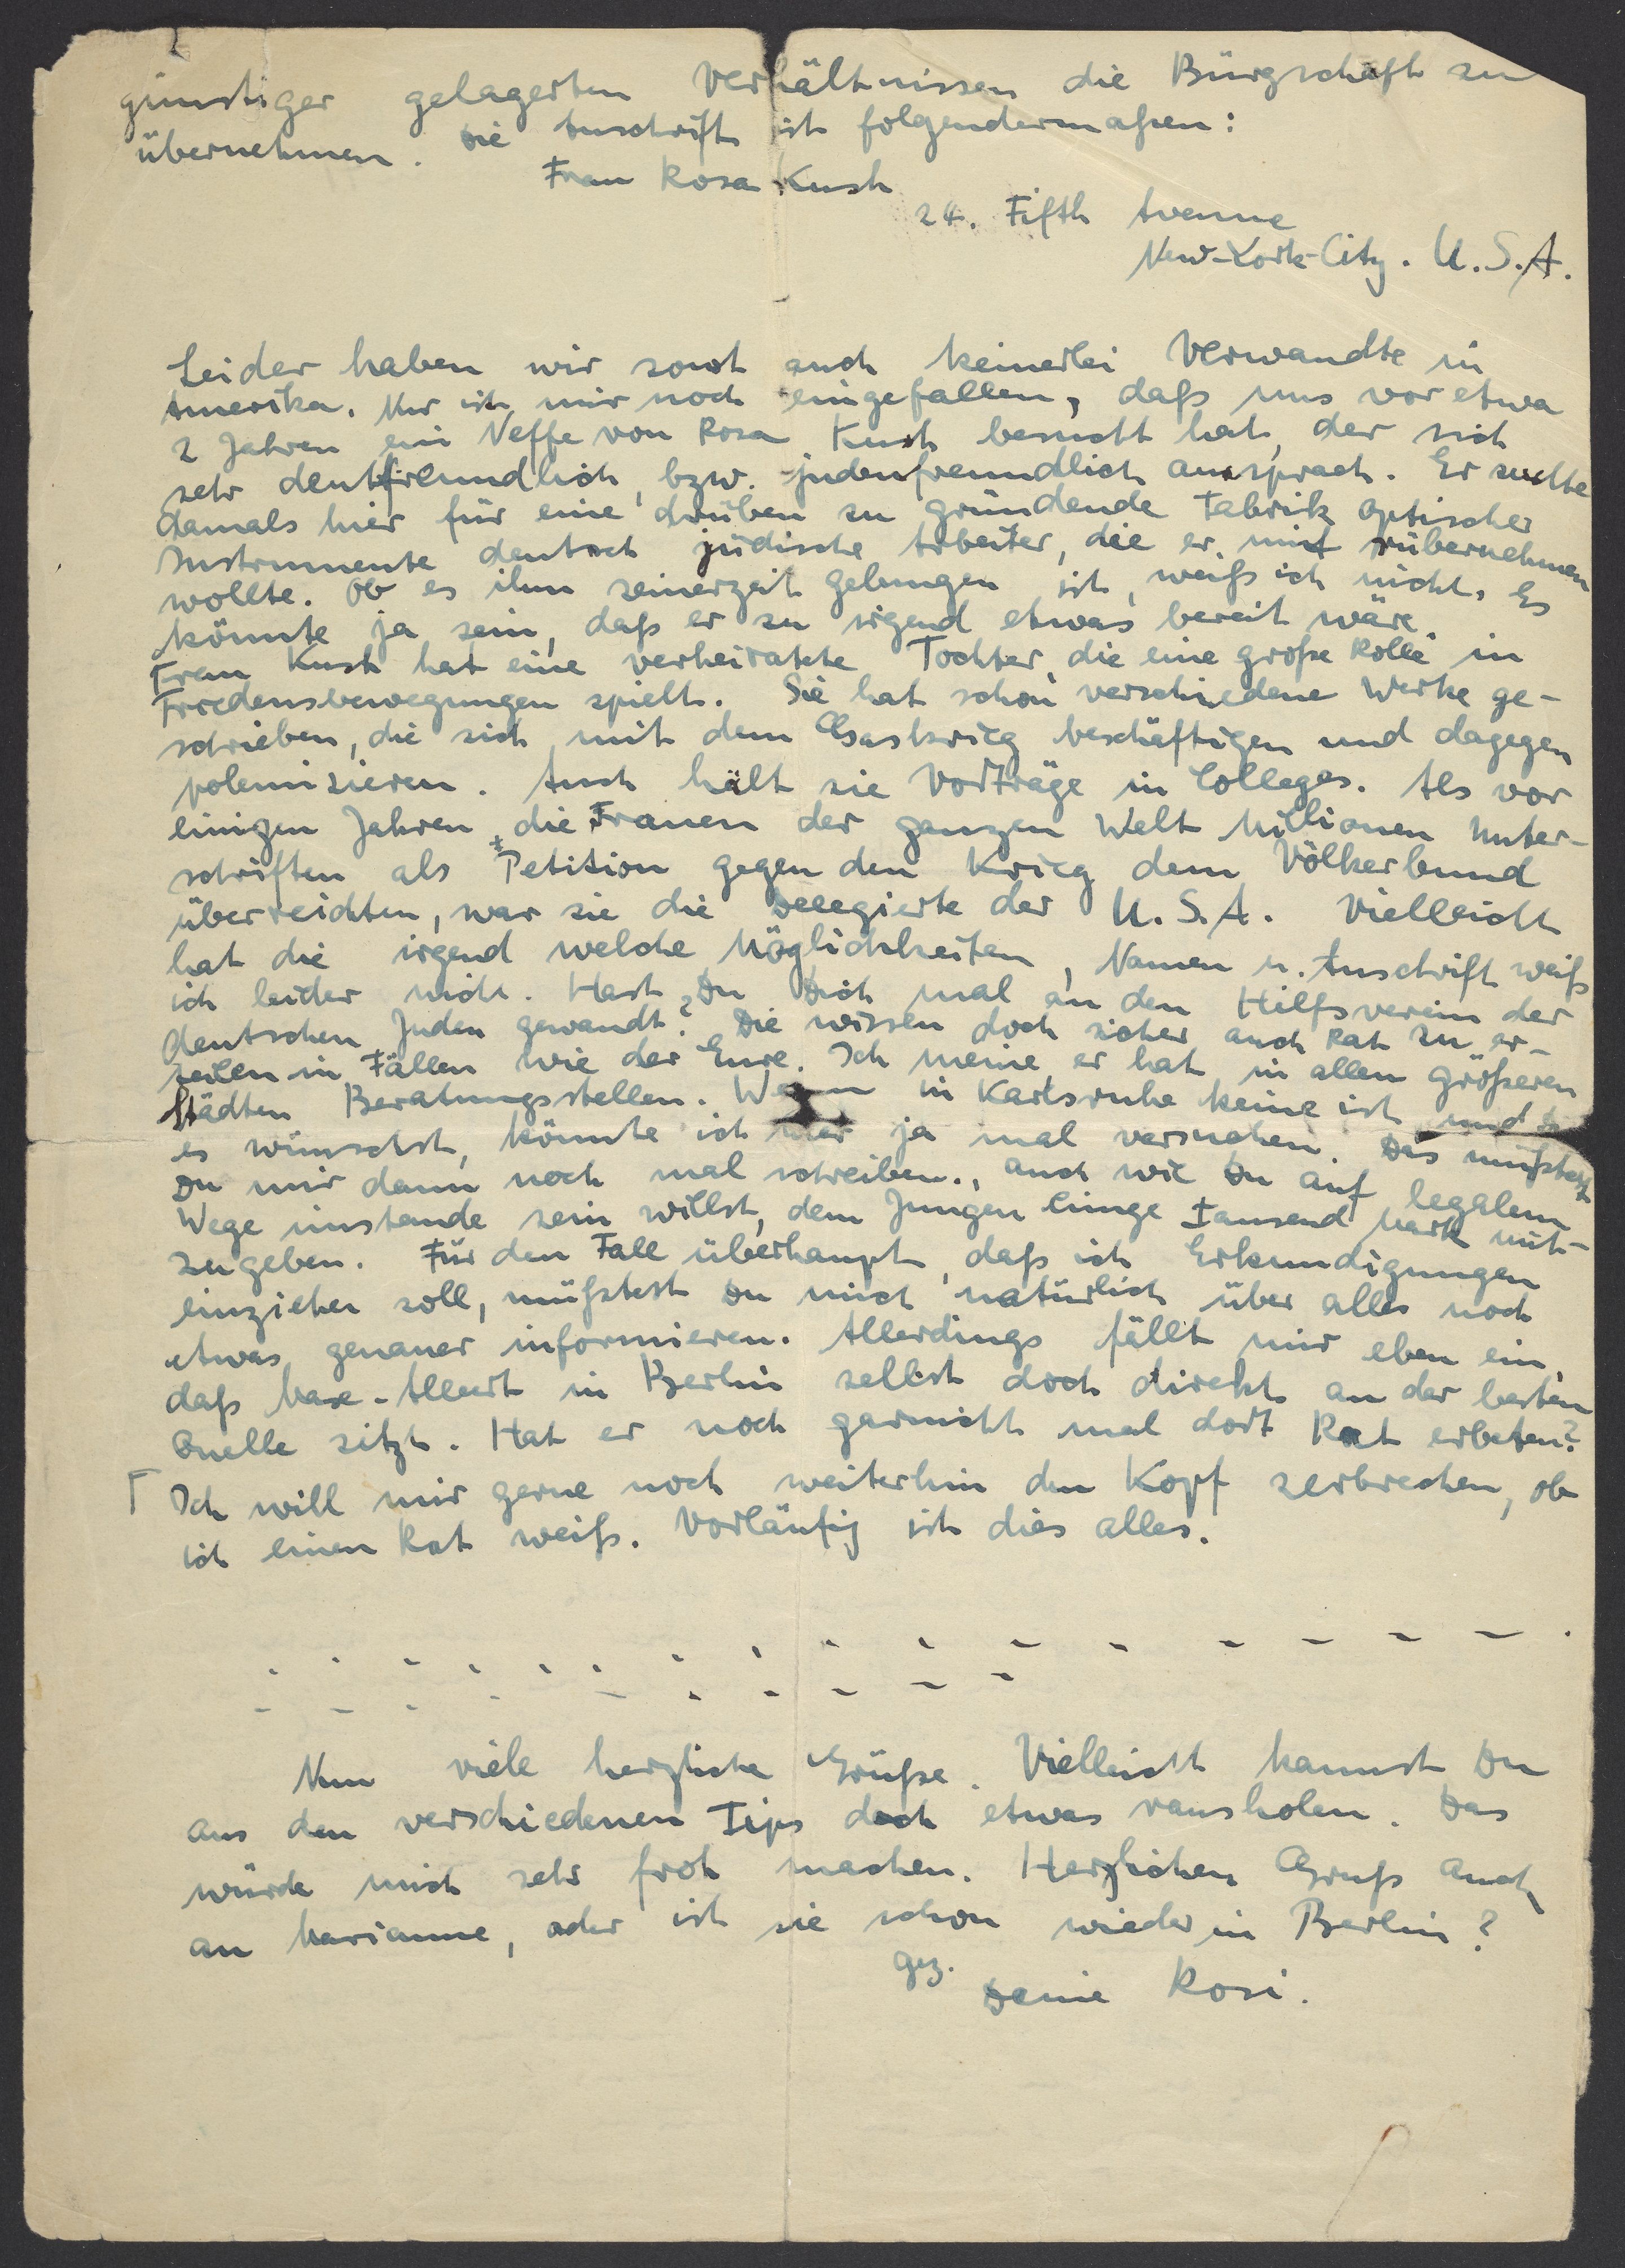 günstiger gelagerten Verhältnissen die Bürgschaft zu
übernehmen. Die Anschrift ist folgendermaßen:
Frau Rosa Kush
24. Fifth Avenue
New-York-City. U.S.A.
Leider haben wir sonst auch keinerlei Verwandte in
Amerika. Nur ist mir noch eingefallen, daß uns vor etwa
2 Jahren ein Neffe von Rosa Kush besucht hat, der sich
sehr deutschfreundlich, bzw. judenfreundlich aussprach. Er suchte
damals hier für eine drüben zu gründende Fabrik optischer
Instrumente deutsch jüdische Arbeiter, die er mit rübernehmen
wollte. Ob es ihm seinerzeit gelungen ist, weiß ich nicht. Es
könnte ja sein, daß er zu irgend etwas bereit wäre.
Frau Kush hat eine verheiratete Tochter, die eine große Rolle in
Friedensbewegungen spielt. Sie hat schon verschiedene Werke ge-
schrieben, die sich mit dem Gaskrieg beschäftigen und dagegen
polemisieren. Auch hält sie Vorträge in Colleges. Als vor
einigen Jahren die Frauen der ganzen Welt Millionen Unter-
schriften als Petition gegen den Krieg dem Völkerbund
überreichten, war sie die Delegierte der U.S.A. Vielleicht
hat die irgend welche Möglichkeiten, Namen u. Anschrift weiß
ich leider nicht. Hast Du Dich mal an den Hilfsverein der
deutschen Juden gewandt? Die wissen doch sicher auch Rat zu er-
teilen in Fällen wie der Eure. Ich meine, er hat in allen größeren
Städten Beratungsstellen. Wenn in Karlsruhe keine ist und Du
es wünschst, könnte ich hier ja mal versuchen. Das müßtest
Du mir dann noch mal schreiben., auch wie Du auf legalem
Wege imstande sein willst, dem Jungen einige tausend Mark mit-
zugeben. Für den Fall überhaupt, daß ich Erkundigungen
einziehen soll, müßtest Du mich natürlich über alles noch
etwas genauer informieren. Allerdings fällt mir eben ein,
daß Max-Albert in Berlin selbst doch direkt an der besten
Quelle sitzt. Hat er noch garnicht mal dort Rat erbeten?
Ich will mir gerne noch weiterhin den Kopf zerbrechen, ob
ich einen Rat weiß. Vorläufig ist dies alles.
Nun viele herzliche Grüße. Vielleicht kannst Du
aus den verschiedenen Tips doch etwas rausholen. Das
würde mich sehr froh machen. Herzlichen Gruß auch
an Marianne, oder ist sie schon wieder in Berlin?
gez.
Deine Rosi.